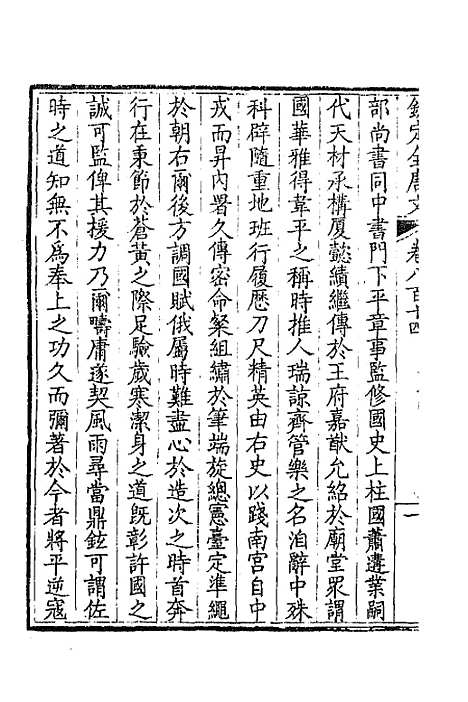 欽定全唐文　卷八百十四　一
部尚書同中書門下平章事監修國史上柱國蕭遘業嗣
代天材承構厦懿績繼傳於王府嘉猷允紹於廟堂眾謂
國華雅得韋平之稱時推人瑞諒齊管樂之名洎辭中殊
科辟隨重地班行履歷刀尺精英由右史以踐南宫自中
戎而昇內署久傳密命粲組繡於筆端旋總憲臺定準繩
於朝右爾後方調國賦俄屬時難盡心於造次之時首奔
行在秉節於蒼黃之際足驗歲寒潔身之道旣彰許國之
誠可監俾其援力乃爾疇庸遂契風雨尋當鼎鉉可謂佐
時之道知無不爲奉上之功久而彌著於今者將平逆寇